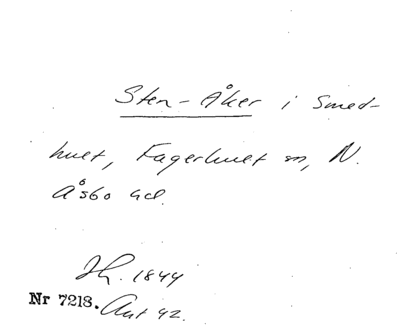 Sten-Åker i Smed-
hult, Fagerhult sn, N.
Åsbo hd.
Jh. 1844
Nr 7218. Ant 42.